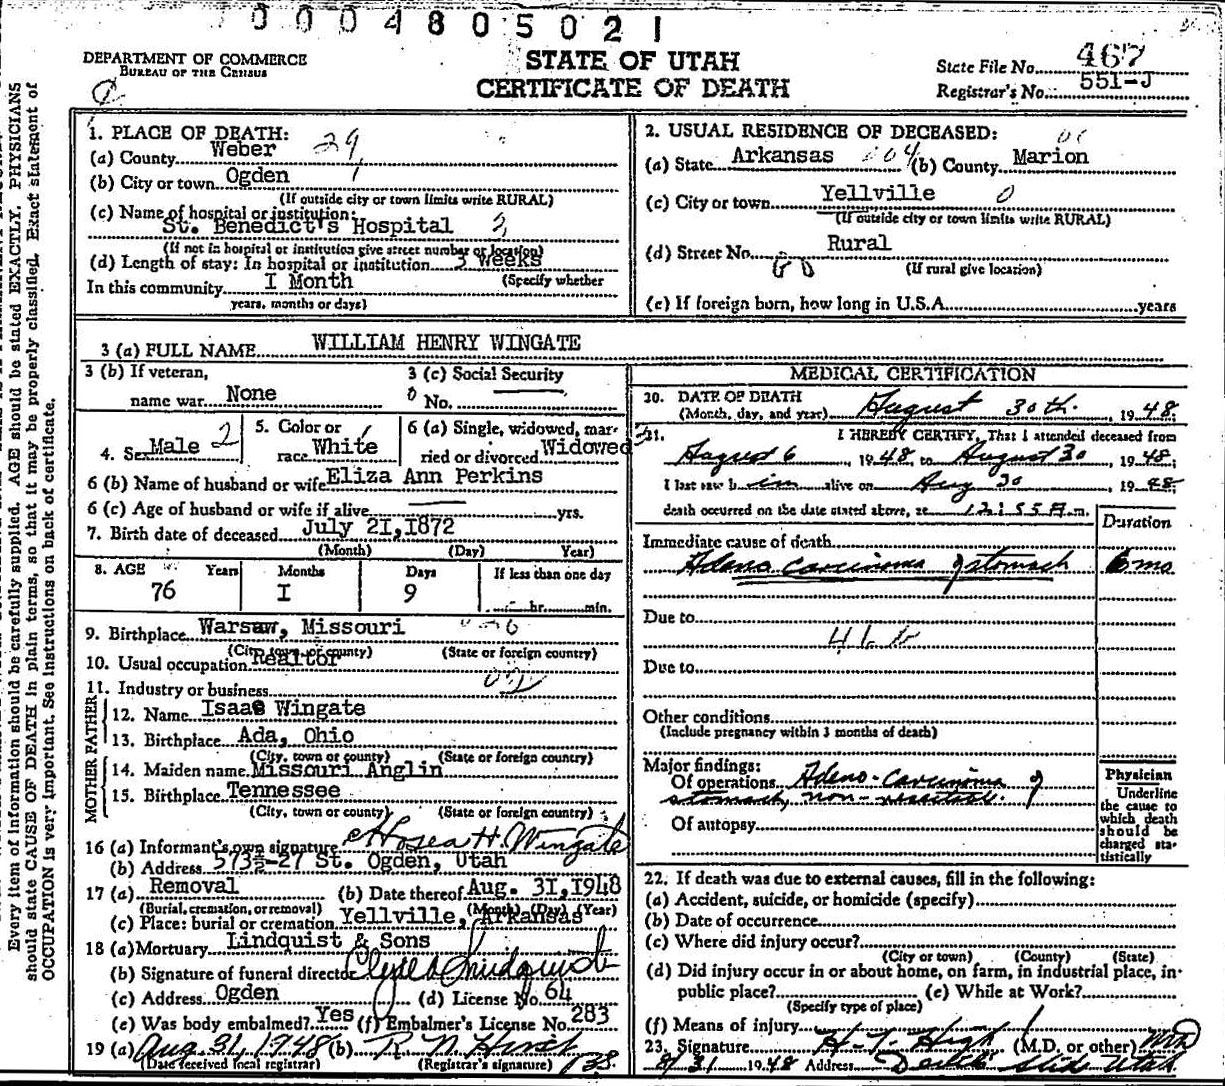 0004805021
DEPARTMENT OF COMMERCE
BUREAU OF THE CENSUS
STATE OF UTAH
CERTIFICATE OF DEATH
State File No. 467
Registrar's No. 551-J
Every item of information should be carefully supplied. AGE should be stated EXACTLY. PHYSICIANS
should state CAUSE OF DEATH in plain terms, so that it may be properly classified. Exact statement of
OCCUPATION is very important. See instructions on back of certificate.
1. PLACE OF DEATH: 29
(a) County Weber
(b) City or town Ogden
(If outside city or town limits write RURAL)
(c) Name of hospital or institution:
St. Benedict's Hospital
(If not in hospital or institution give street number or location)
(d) Length of stay: In hospital or institution 3 weeks
(Specify whether
In this community I Month
years, months or days)
2. USUAL RESIDENCE OF DECEASED:
(a) State Arkansas (b) County Marion
(c) City or town Yellville 0
(If outside city or town limits write RURAL)
(d) Street No. Rural
(If rural give location)
(e) If foreign born, how long in U.S.A. years
3 (a) FULL NAME WILLIAM HENRY WINGATE
3 (b) If veteran,
name war None
3 (c) Social Security
No.
4. Sex Male 2
5. Color or
race White
6 (a) Single, widowed, mar-
ried or divorced Widowed
6 (b) Name of husband or wife Eliza Ann Perkins
6 (c) Age of husband or wife if alive yrs.
7. Birth date of deceased July 21,1872
(Month) (Day) Year)
8. AGE Years Months Days If less than one day
76 I 9 hr. min.
9. Birthplace Warsaw, Missouri
(City, town or county) (State or foreign country)
10. Usual occupation Realtor
11. Industry or business
FATHER
12. Name Isaac Wingate
13. Birthplace Ada, Ohio
(City, town or county) (State or foreign country)
MOTHER
14. Maiden name Missouri Anglin
15. Birthplace Tennessee
(City, town or county) (State or foreign country)
16 (a) Informant's own signature Hosea H. Wingate
(b) Address 573½-27 St. Ogden, Utah
17 (a) Removal (b) Date thereof Aug. 31,1948
(Burial, cremation, or removal) (Month) (Day) (Year)
(c) Place: burial or cremation Yellville, Arkansas
18 (a) Mortuary Lindquist & Sons
(b) Signature of funeral director Clyde Lindquist
(c) Address Ogden (d) License No. 64
(e) Was body embalmed? Yes (f) Embalmer's License No. 283
19 (a) Aug. 31, 1948 (b) R N Hirst
(Date received local registrar) (Registrar's signature)
MEDICAL CERTIFICATION
20. DATE OF DEATH
(Month, day, and year) August 30th. 1948.
21. I HEREBY CERTIFY, That I attended deceased from
August 6, 1948, to August 30, 1948;
I last saw him alive on Aug 30, 1948
death occurred on the date stated above, at 12:55 A.m.
Duration
Immediate cause of death
Adeno carcinoma of stomach 6 mo
Due to
46b
Due to
Other conditions
(Include pregnancy within 3 months of death)
Major findings:
Of operations Adeno-carcinoma of
stomach, non-
Of autopsy
Physician
Underline
the cause to
which death
should be
charged sta-
tistically
22. If death was due to external causes, fill in the following:
(a) Accident, suicide, or homicide (specify)
(b) Date of occurrence
(c) Where did injury occur?
(City or town) (County) (State)
(d) Did injury occur in or about home, on farm, in industrial place, in
public place? (e) While at Work?
(Specify type of place)
(f) Means of injury
23. Signature H-T. High (M.D. or other) MD
8/31 1948 Address Utah